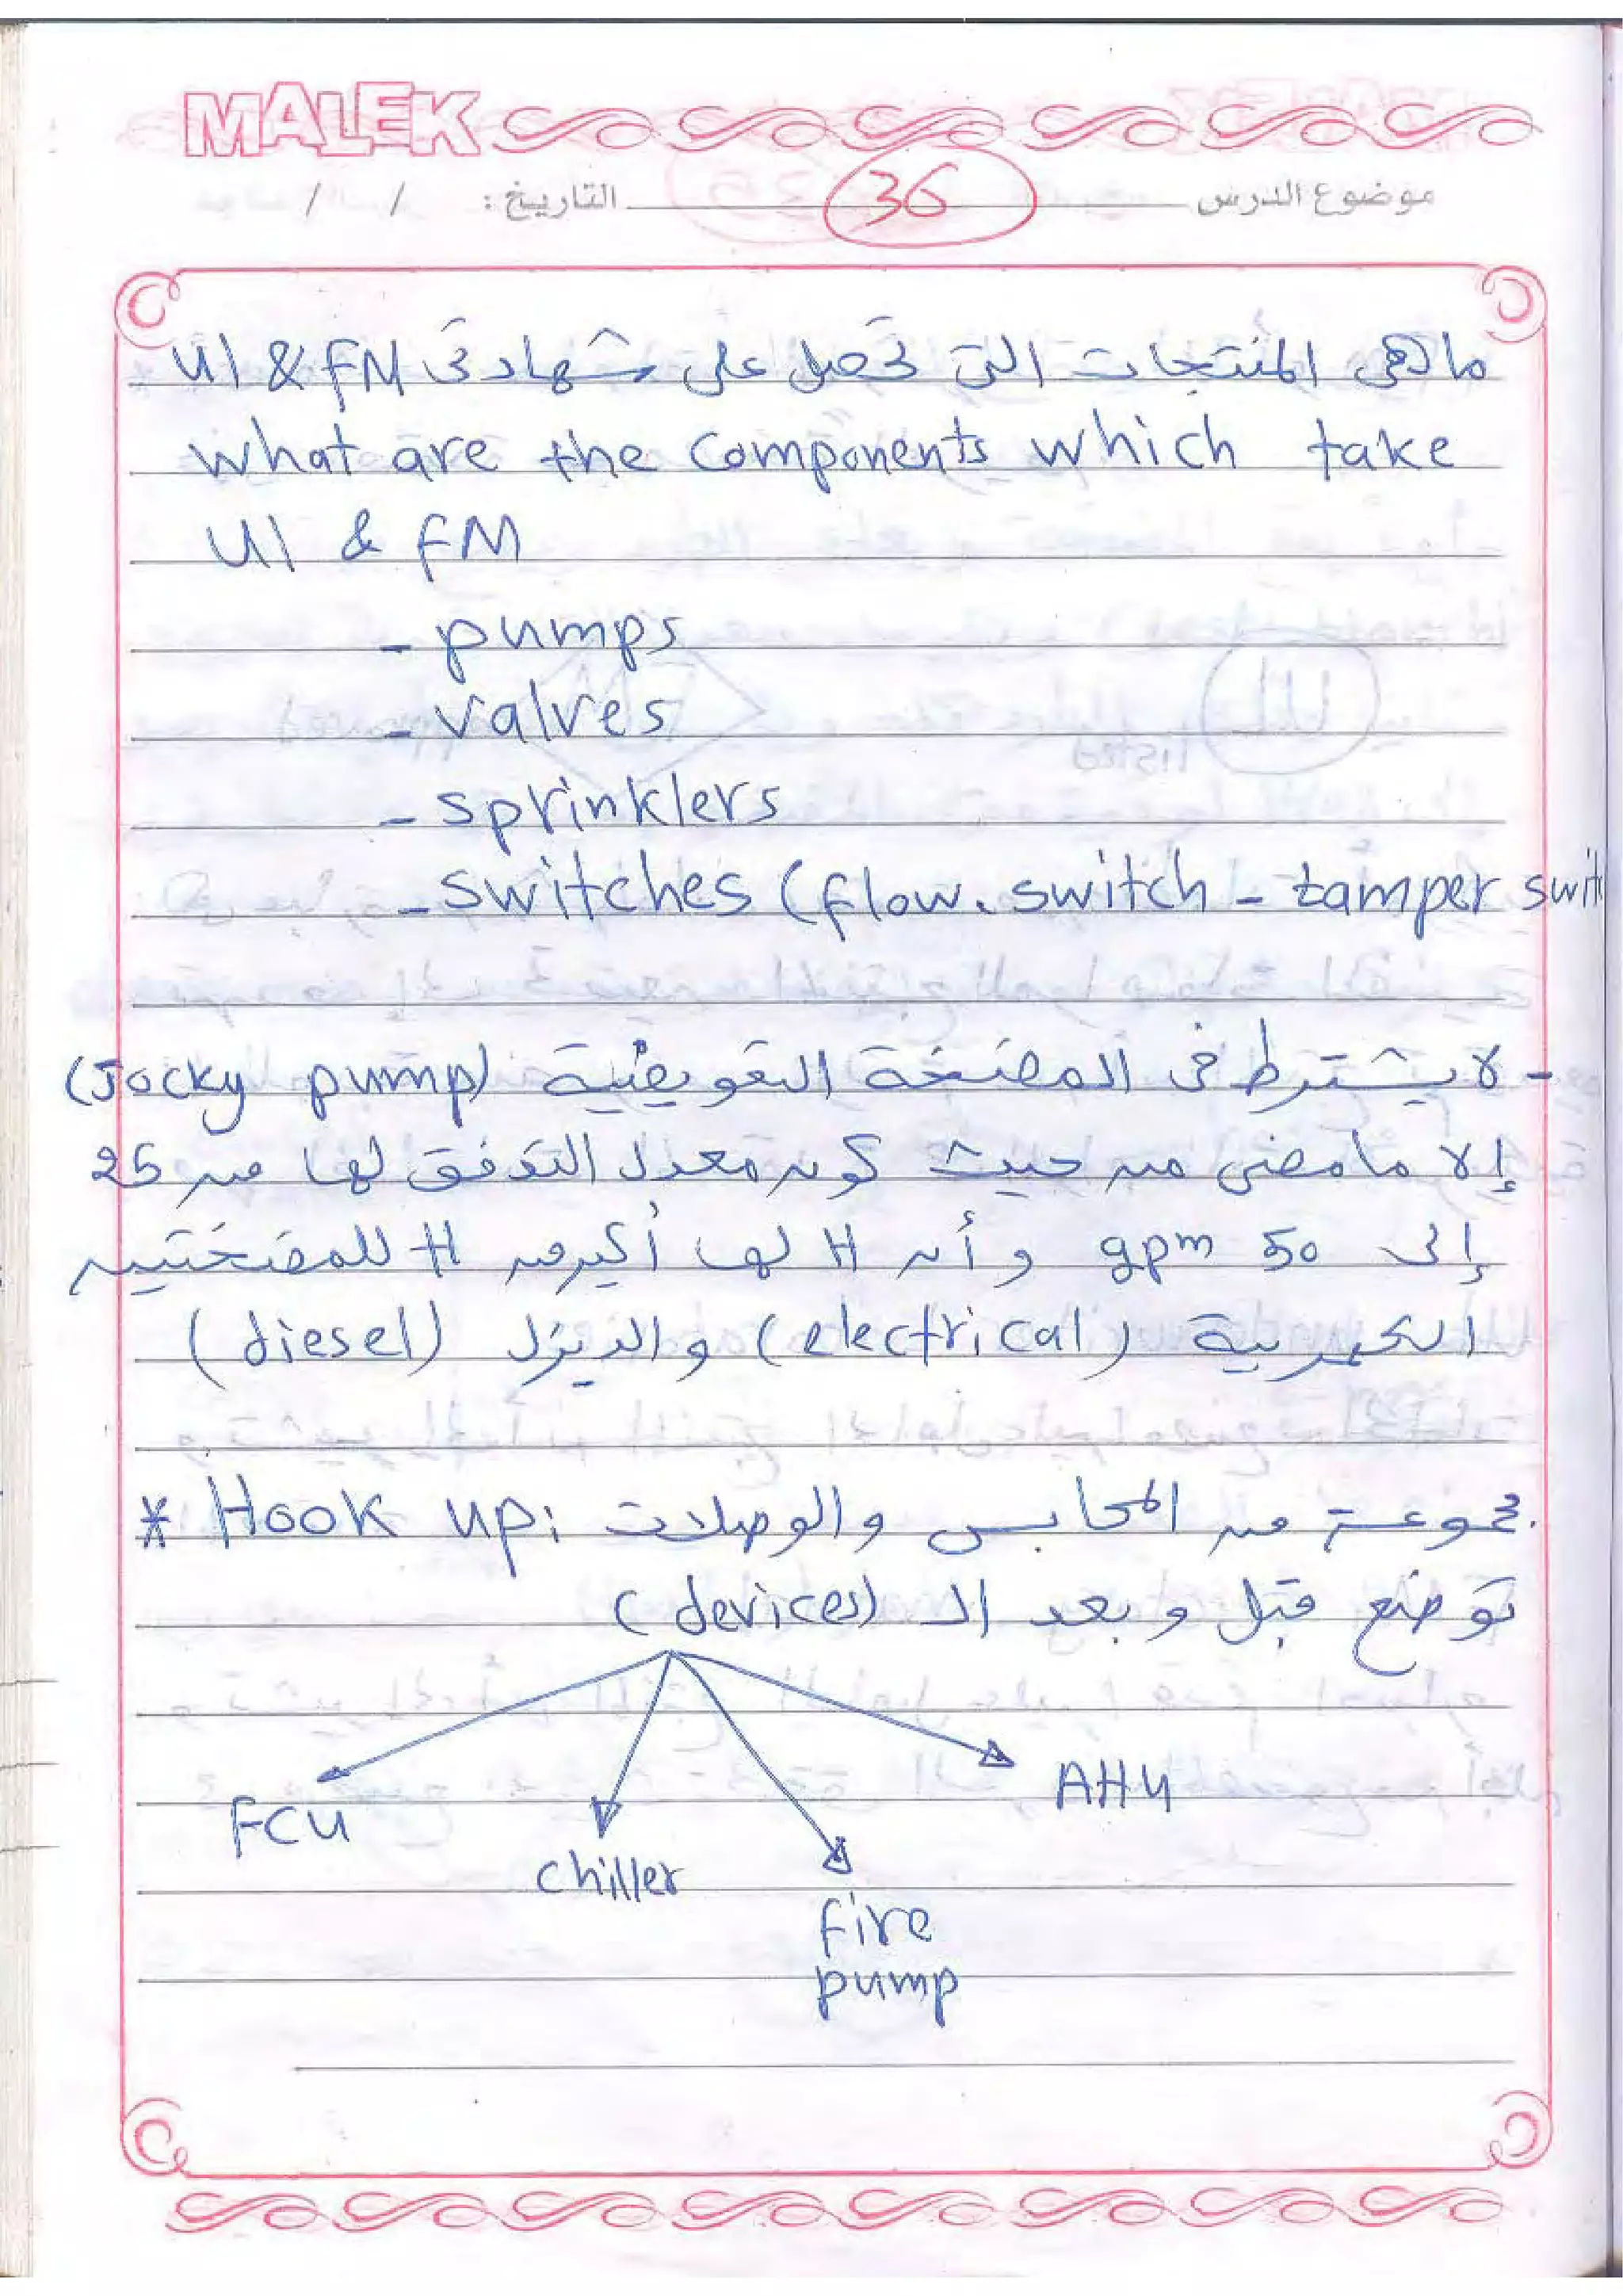 MALEK
موضوع الدرس 36 التاريخ: / /
ماهى المنتجات التى تحصل على شهادتى UI & FM
what are the components which take
UI & FM
- pumps
- valves
- sprinklers
- switches (flow. switch - tamper swit
- لا يشترط فى المضخة التعويضية (Jocky pump)
إلا ما مضى من حيث كون معدل التدفق لها من 25
إلى 50 gpm وأن H لها أكبر من H للمضختين
الكهربية (electrical) والديزل (diesel)
* Hook up: مجموعة من المحابس والوصلات
توضع قبل وبعد الـ (devices)
AHU
FCU
chiller
fire
pump